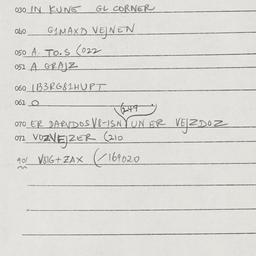 030 IN KUNE GL CORNER
040 G1MAXD VEJNEN
050 A. TO.S (022
051 A GRAJZ
060 1B3RG82HUPT
061 O
(249
070 ER DARVDOS V8-ISN UN ER VEJZDOZ
071 VOZVEJZER (210
90/ V8IG+ZAX (/169020